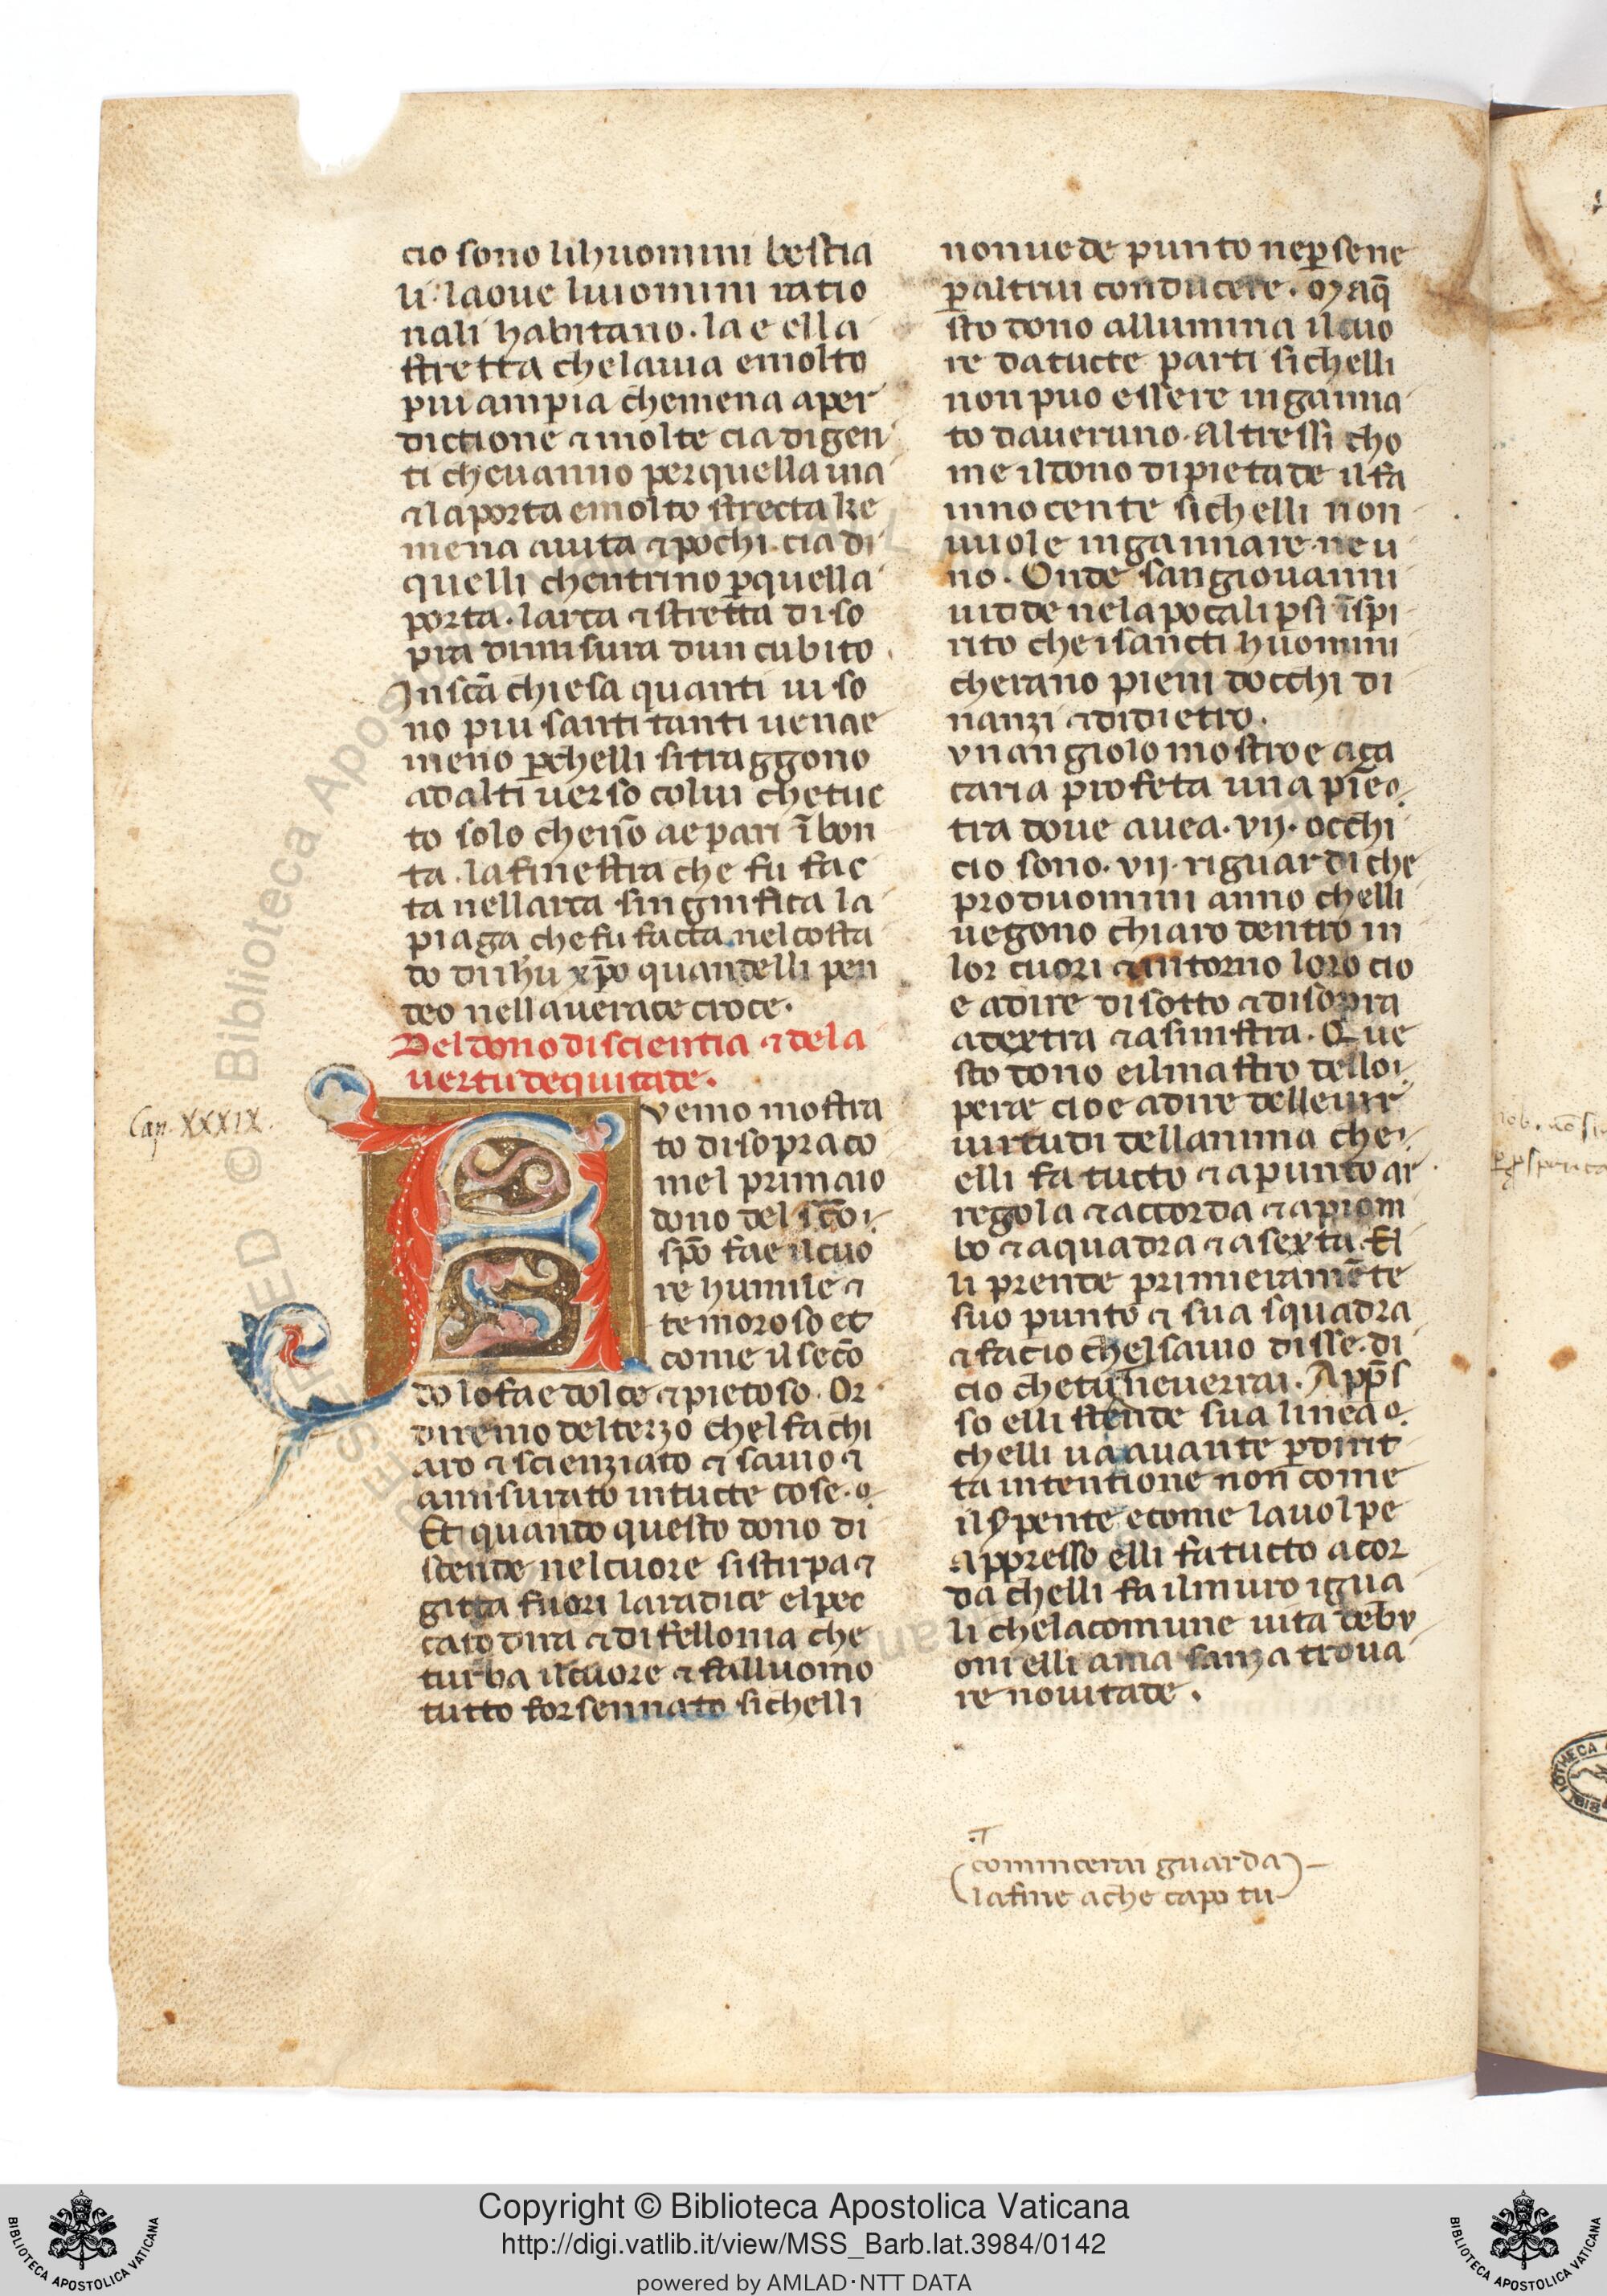 cio sono lihuomini bestia
li. laoue liuiomini ratio
nali habitano. la e ella
stretta chelauia emolto
piu ampia chemena aper
dictione ⁊ molte cia digen
ti cheuanno perquella uia
⁊ laporta emolto strecta ke
mena auita ⁊ pochi. cia di
quelli chentrino ꝑquella
porta. larca ⁊ stretta di so
pra dimisura dun cubito.
Inscā chiesa quanti ui so
no piu santi tanti uenae
meno ꝑchelli sitraggono
adalti uerso colui chetuc
to solo chenō aepari ībon
ta. lafinestra che fu fac
ta nellarca singnifica la
piaga chefu facta nelcosta
do diihū xp̄o quandelli pen
deo nellauerace croce.
Deldono discientia ⁊ dela
uertudequitade.
Cap. XXXIX.
Auemo mostra
to disopra co
mel primaio
dono del sc̄o
sp̄o fae ilcuo
re humile ⁊
temoroso et
come il secō
do lofae dolce ⁊ pietoso. Or
diremo delterzo chel fachi
aro ⁊ scienziato ⁊ sauio ⁊
amisurato intucte cose.
Et quando questo dono di
scende nelcuore sisturpa ⁊
gitta fuori laradice elpec
cato dira ⁊ di fellonia che
turba ilcuore ⁊ falluomo
tutto forsennato sichelli
nonuede punto neꝑsene
ꝑaltrui conducere. Maq̄
sto dono allumina ilcuo
re datucte parti sichelli
non puo essere inganna
to daueruno. Altressi cho
me ildono dipietade il fa
innocente sichelli non
uuole ingannare neu
no. Onde sangiouanni
uidde nelapocalipsi īspi
rito che isancti huomini
cherano pieni docchi di
nanzi ⁊ didietro.
vnangiolo mostroe aça
caria profeta una pie
tra doue auea. vij. occhi
cio sono. vij. riguardi che
produomini anno chelli
uegono chiaro dentro in
lor cuori ⁊ intorno loro cio
e adire disotto ⁊ disopra
adextra ⁊ asinistra. Que
sto dono eilmastro dello
pere cioe adire delleuir
uirtudi dellanima che
elli fa tucto ⁊ apunto ar
regola ⁊ accorda ⁊ apiom
bo ⁊ aquadra ⁊ asexta. El
li prende primieramēte
suo punto ⁊ sua squadra
⁊ facio chelsauio disse. di
cio chetu neuerrai. App̄s
so elli stende sua linea
chelli ua auante ꝑdirit
ta intentione non come
ilspente ecome lauolpe
appresso elli fatucto acor
da chelli fa ilmuro igua
li chelacomune uita debu
oni elli ama sanza troua
re nouitade.
comincerai guarda
lafine ache capo tu
Copyright © Biblioteca Apostolica Vaticana
http://digi.vatlib.it/view/MSS_Barb.lat.3984/0142
powered by AMLAD·NTT DATA